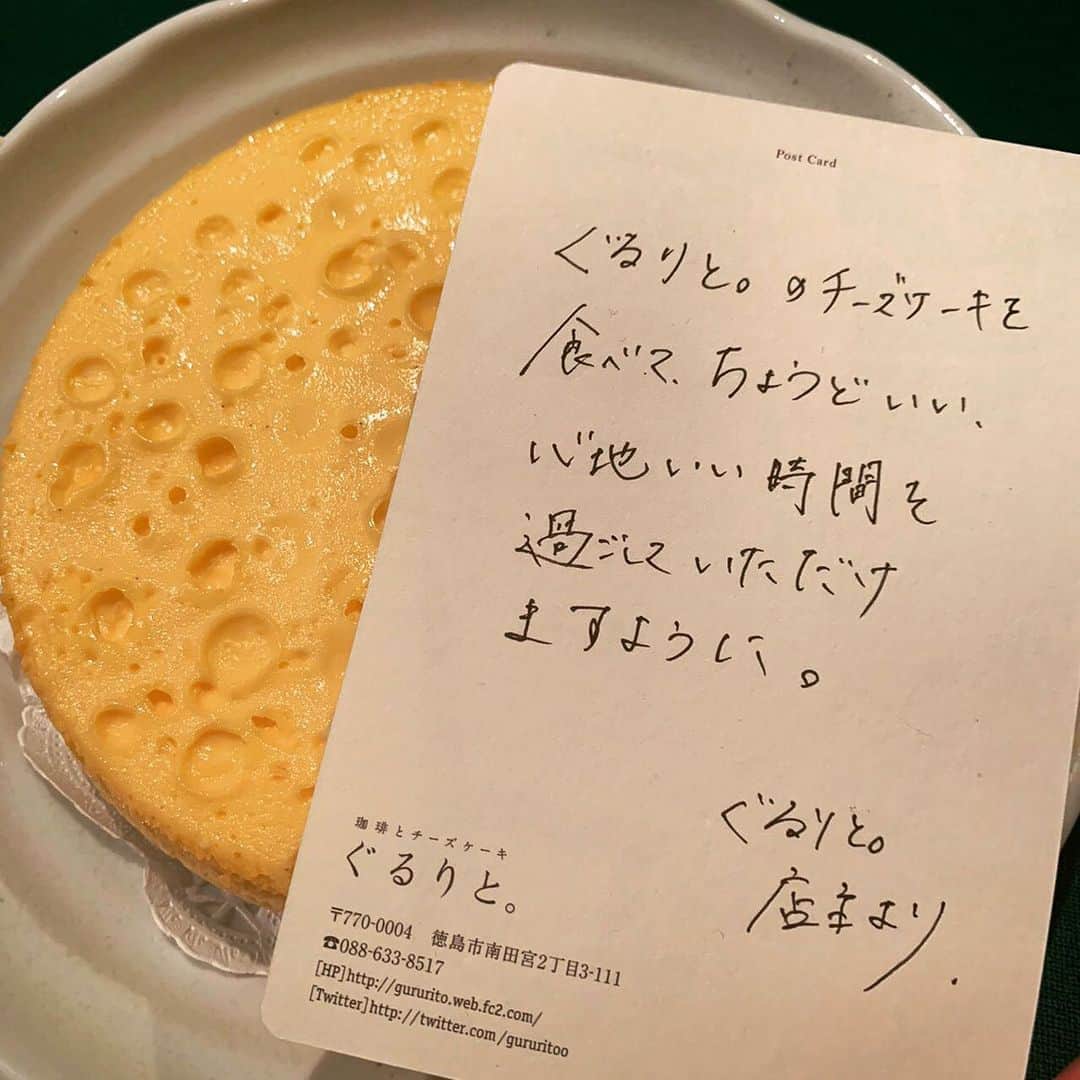 Post Card
ぐるりと。のチーズケーキを
食べて、ちょうどいい、
心地いい時間を
過ごしていただけ
ますように。
ぐるりと。
店主より.
珈琲とチーズケーキ
ぐるりと。
〒770-0004 徳島市南田宮2丁目3-111
☎088-633-8517
[HP]http://gururito.web.fc2.com/
[Twitter]http://twitter.com/gururitoo